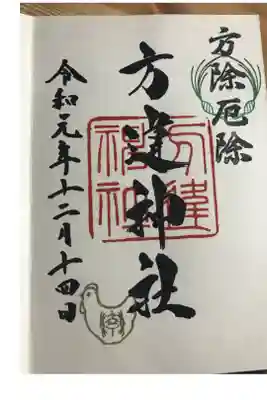 方除厄除
方違神社
方違
神社
令和元年十二月十四日